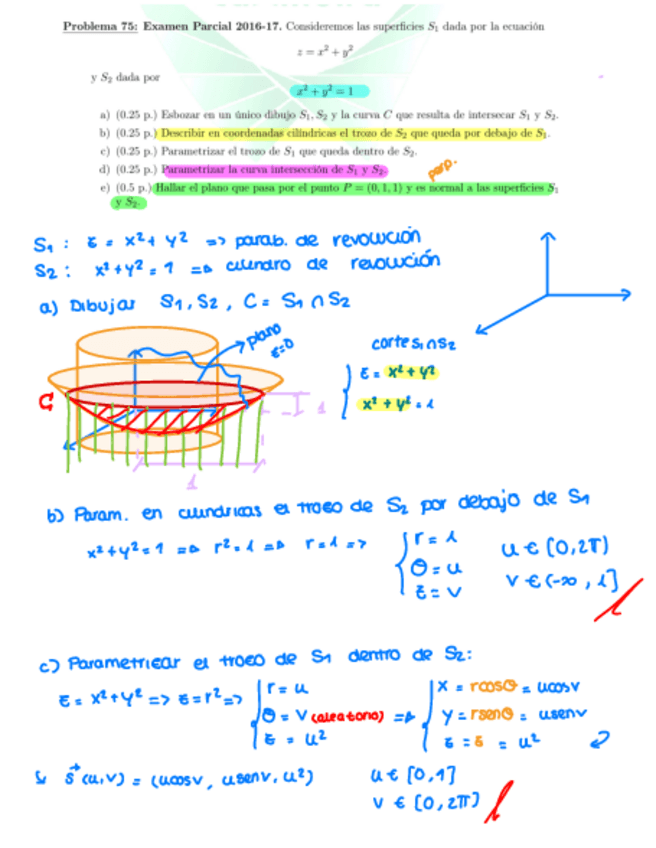 Problema 75: Examen Parcial 2016-17. Consideremos las superficies S₁ dada por la ecuación
z = x² + y²
y S₂ dada por
x² + y² = 1
a) (0.25 p.) Esbozar en un único dibujo S₁, S₂ y la curva C que resulta de intersecar S₁ y S₂.
b) (0.25 p.) Describir en coordenadas cilíndricas el trozo de S₂ que queda por debajo de S₁.
c) (0.25 p.) Parametrizar el trozo de S₁ que queda dentro de S₂.
d) (0.25 p.) Parametrizar la curva intersección de S₁ y S₂.
perp.
e) (0.5 p.) Hallar el plano que pasa por el punto P = (0, 1, 1) y es normal a las superficies S₁
y S₂.
S₁ : z = x² + y² => parab. de revolución
S₂ : x² + y² = 1 => cilindro de revolución
a) Dibujar S₁, S₂, C = S₁ ∩ S₂
plano
z=0
corte S₁∩S₂
z = x² + y²
x² + y² = 1
C
1
1
b) Param. en cilíndricas el trozo de S₂ por debajo de S₁
x² + y² = 1 => r² = 1 => r = 1 => r = 1
θ = u
z = v
u ∈ [0, 2π)
v ∈ (-∞, 1]
c) Parametrizar el trozo de S₁ dentro de S₂:
z = x² + y² => z = r² => r = u
θ = v (aleatorio) =>
z = u²
x = rcosθ = ucosv
y = rsenθ = usenv
z = z = u²
↳ s⃗(u,v) = (ucosv, usenv, u²)
u ∈ [0, 1]
v ∈ [0, 2π)